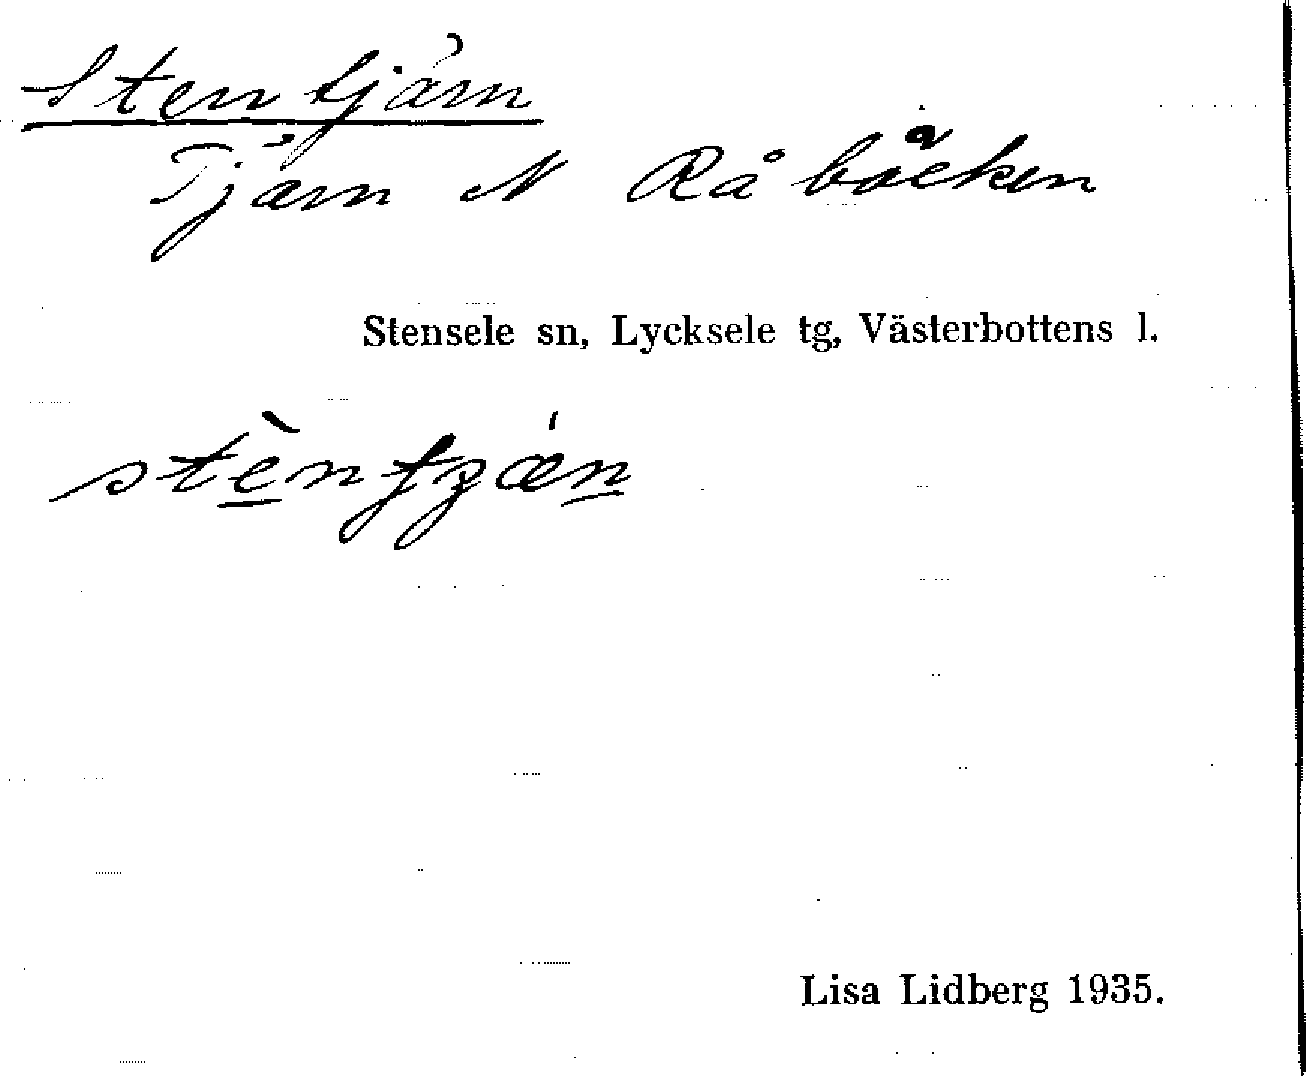 Stentjärn
Tjärn N Råbäcken
Stensele sn, Lycksele tg, Västerbottens l.
Lisa Lidberg 1935.